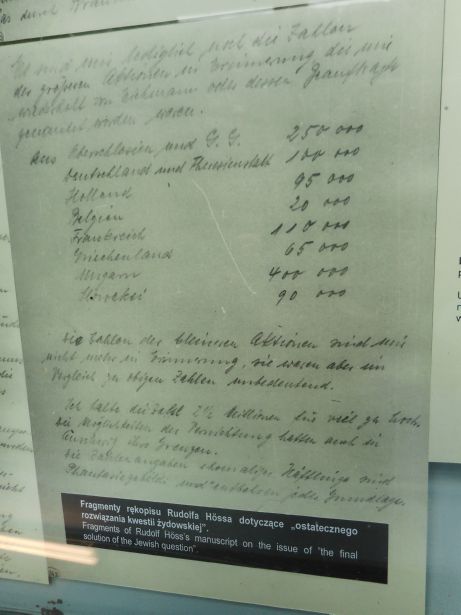 Es sind mir lediglich noch die Zahlen
der größeren Aktionen in Erinnerung, die mir
wiederholt von Eichmann oder dessen Beauftragte
genannt worden waren.
Aus Oberschlesien und G. G. 250 000
Deutschland und Theresienstadt 100 000
Holland 95 000
Belgien 20 000
Frankreich 110 000
Griechenland 65 000
Ungarn 400 000
Slowakei 90 000
Die Zahlen der kleineren Aktionen sind mir
nicht mehr in Erinnerung, sie waren aber im
Vergleich zu obigen Zahlen unbedeutend.
Ich halte die Zahl 2½ Millionen für viel zu hoch.
Die Möglichkeiten der Vernichtung hatten auch in
Auschwitz ihre Grenzen.
Die Zahlenangaben ehemaliger Häftlinge sind
Phantasiegebilde und entbehren jeder Grundlage.
Fragmenty rękopisu Rudolfa Hössa dotyczące „ostatecznego
rozwiązania kwestii żydowskiej".
Fragments of Rudolf Höss's manuscript on the issue of "the final
solution of the Jewish question".